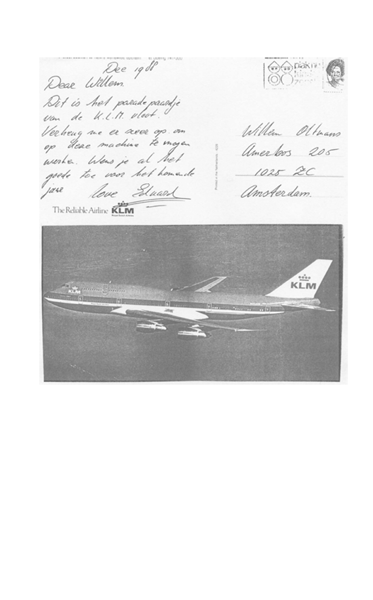 Dec 1988
Dear Willem
Dit is het paradepaardje
van de K.L.M vloot.
Verheug me er zeer op om
op deze machine te mogen
werken. Wens je al het
goede toe voor het komende
jaar love Eduard
The Reliable Airline KLM
Willem Oltmans
Amerbos 205
1025 ZC
Amsterdam.
KLM